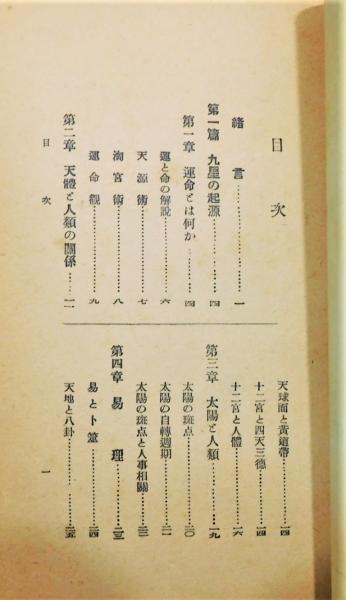 目次
緒言…………………一
第一篇 九星の起源…………四
第一章 運命とは何か…………四
運と命の解說…………六
天源術…………七
淘宮術…………八
運命觀…………九
第二章 天體と人類の關係……一一
天球面と黃道帶…………一四
十二宮と四天三德…………一四
十二宮と人體…………一六
第三章 太陽と人類…………一九
太陽の斑点…………二〇
太陽の自轉週期…………二一
太陽の斑点と人事相關…………二二
第四章 易理…………二三
易と卜筮…………二四
天地と八卦…………二五
目次
一